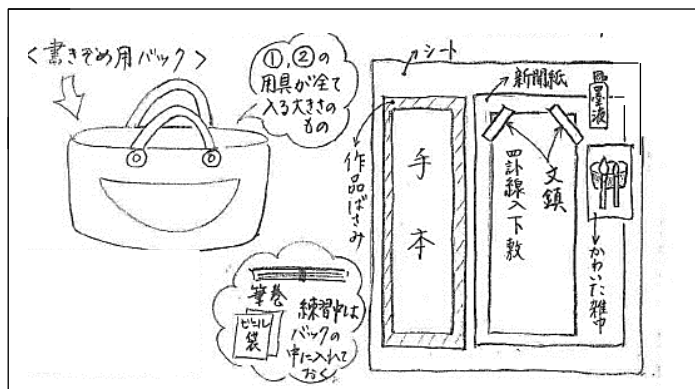 <書きぞめ用バック>
①,②の
用具が全て
入る大きさの
もの
シート
新聞紙
墨液
作品ばさみ
手本
罫線入下敷
文鎮
かわいた雑巾
筆巻
ビニール
袋
練習中は
バックの
中に入れて
おく